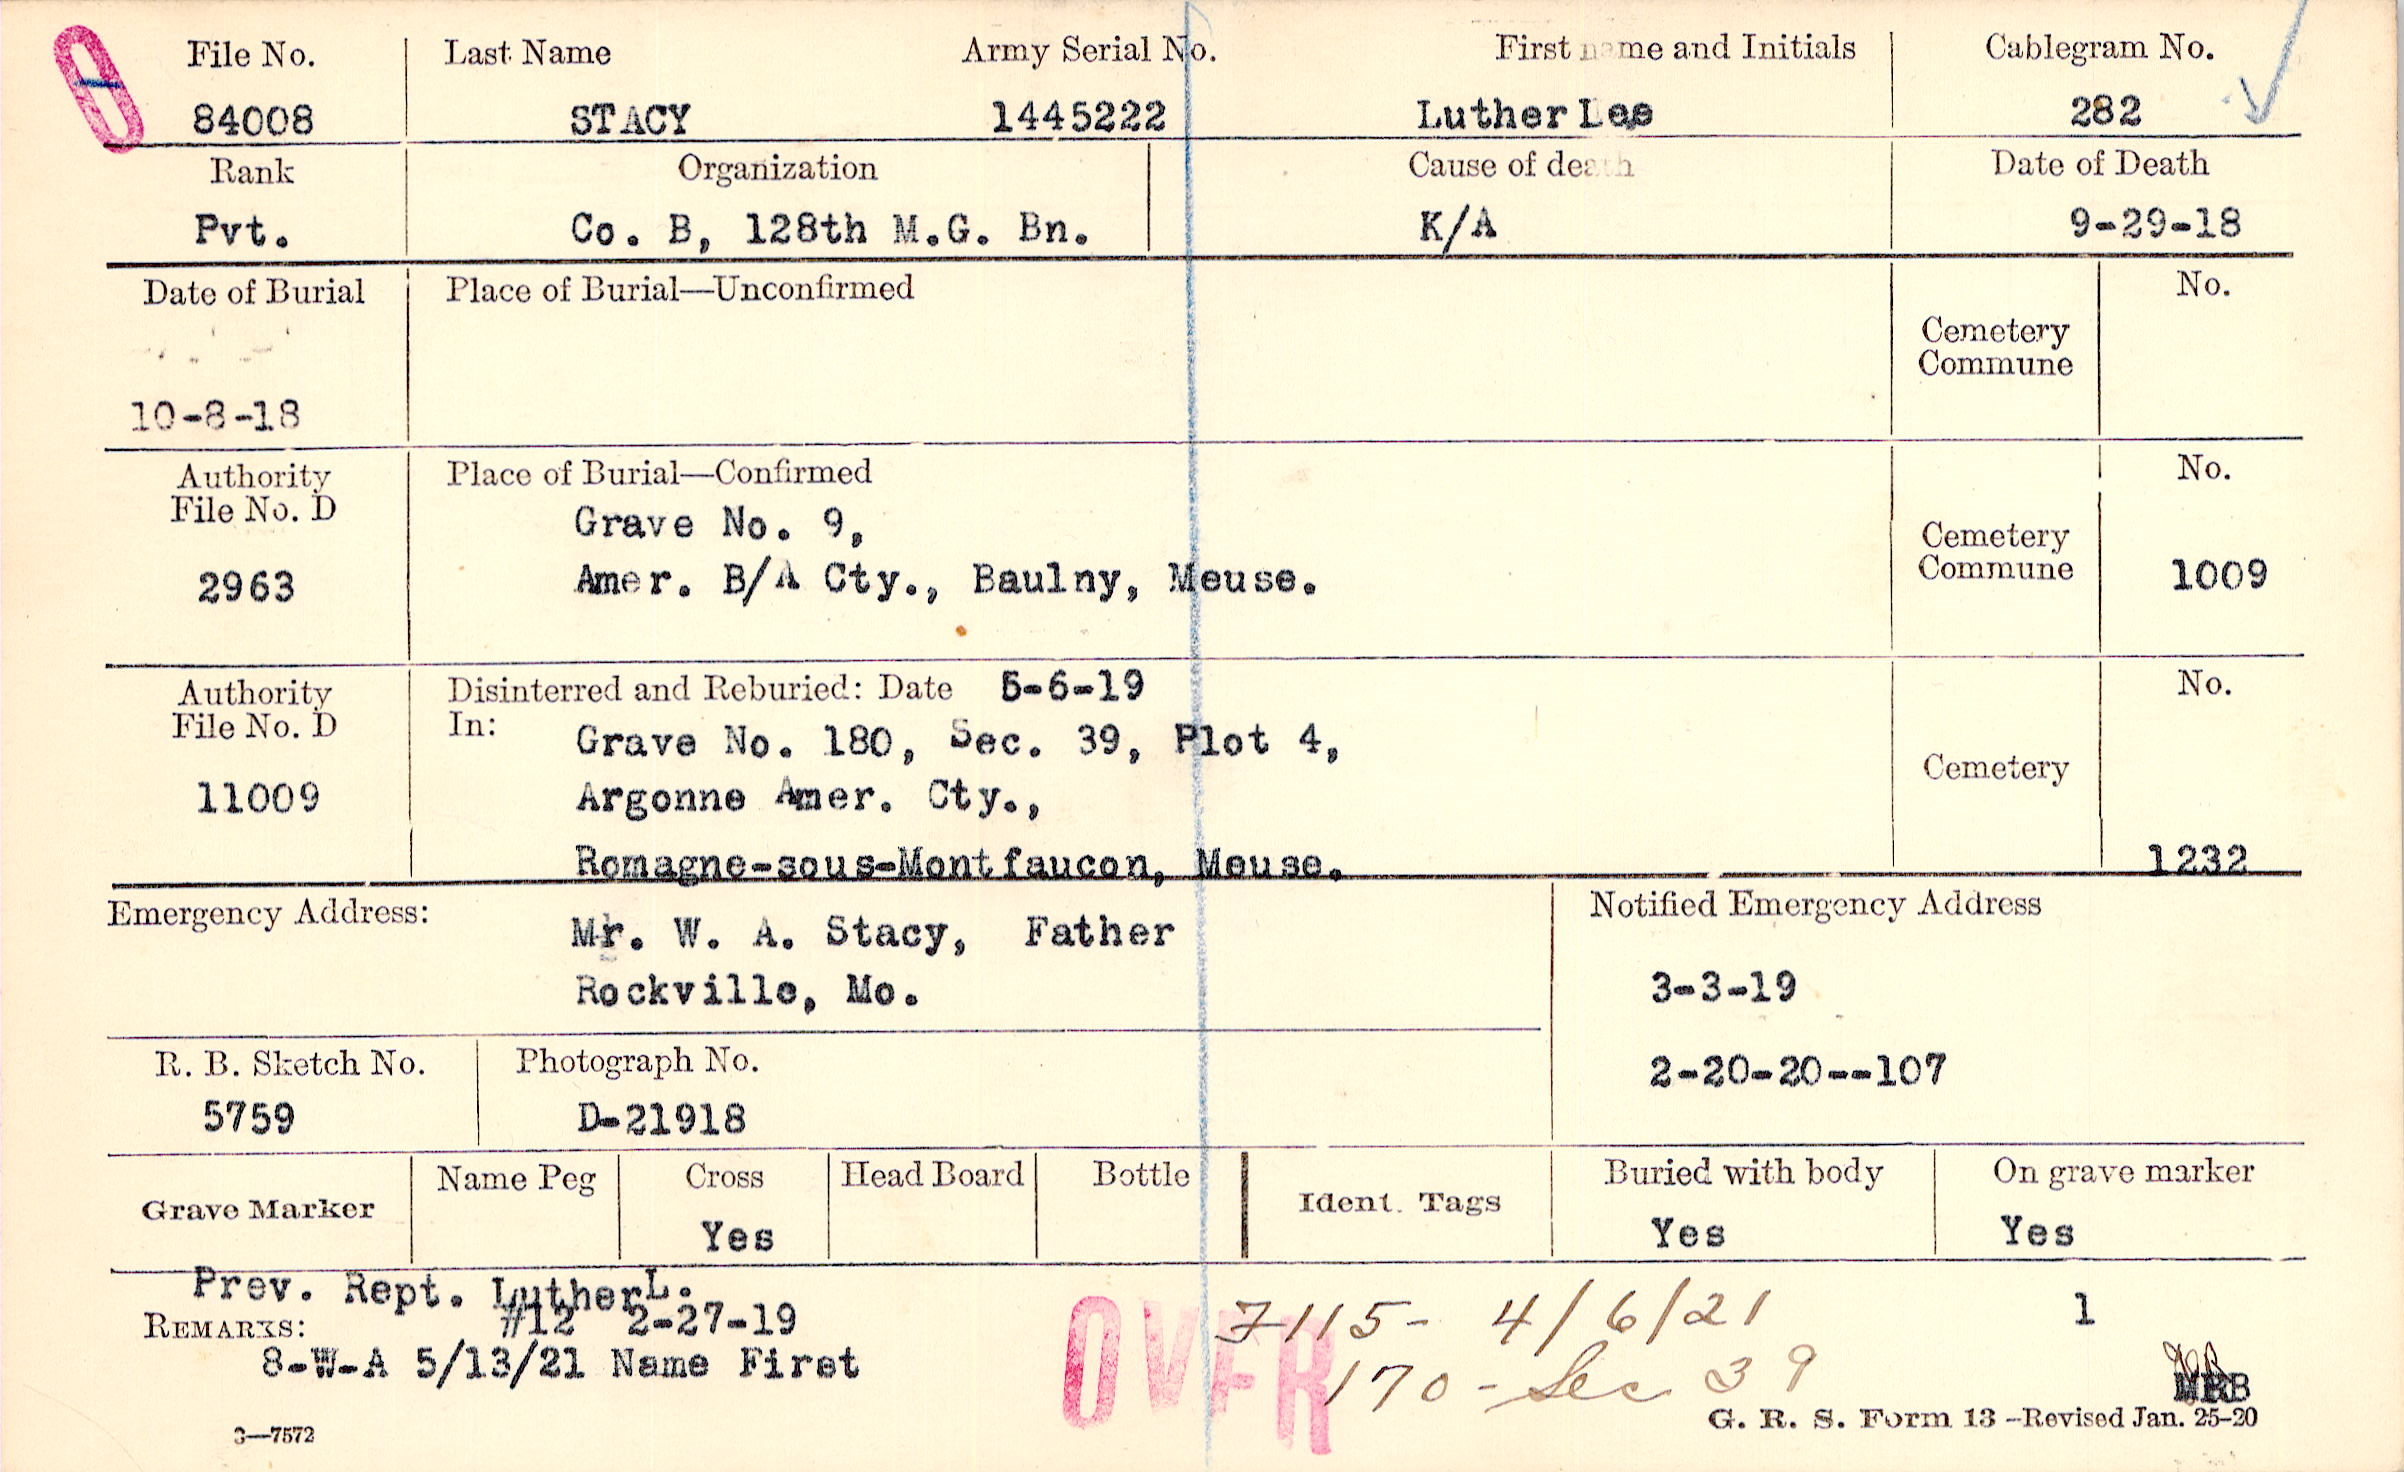 File No. Last Name Army Serial No. First name and Initials Cablegram No.
84008 STACY 1445222 Luther Lee 282
Rank Organization Cause of death Date of Death
Pvt. Co. B, 128th M.G. Bn. K/A 9-29-18
Date of Burial Place of Burial—Unconfirmed No.
Cemetery
Commune
10-8-18
Authority Place of Burial—Confirmed No.
File No. D
Grave No. 9,
Cemetery
Commune
2963 Amer. B/A Cty., Baulny, Meuse. 1009
Authority Disinterred and Reburied: Date 5-6-19 No.
File No. D In:
Grave No. 180, Sec. 39, Plot 4,
Cemetery
11009 Argonne Amer. Cty.,
Romagne-sous-Montfaucon, Meuse. 1232
Emergency Address: Notified Emergency Address
Mr. W. A. Stacy, Father
Rockville, Mo. 3-3-19
R. B. Sketch No. Photograph No. 2-20-20--107
5759 D-21918
Grave Marker Name Peg Cross Head Board Bottle Ident. Tags Buried with body On grave marker
Yes Yes Yes
Prev. Rept. Luther L.
REMARKS: #12 2-27-19
8-W-A 5/13/21 Name First
OVER
7115- 4/6/21 1
170 - Sec 39
MRB
3—7572
G. R. S. Form 13—Revised Jan. 25-20